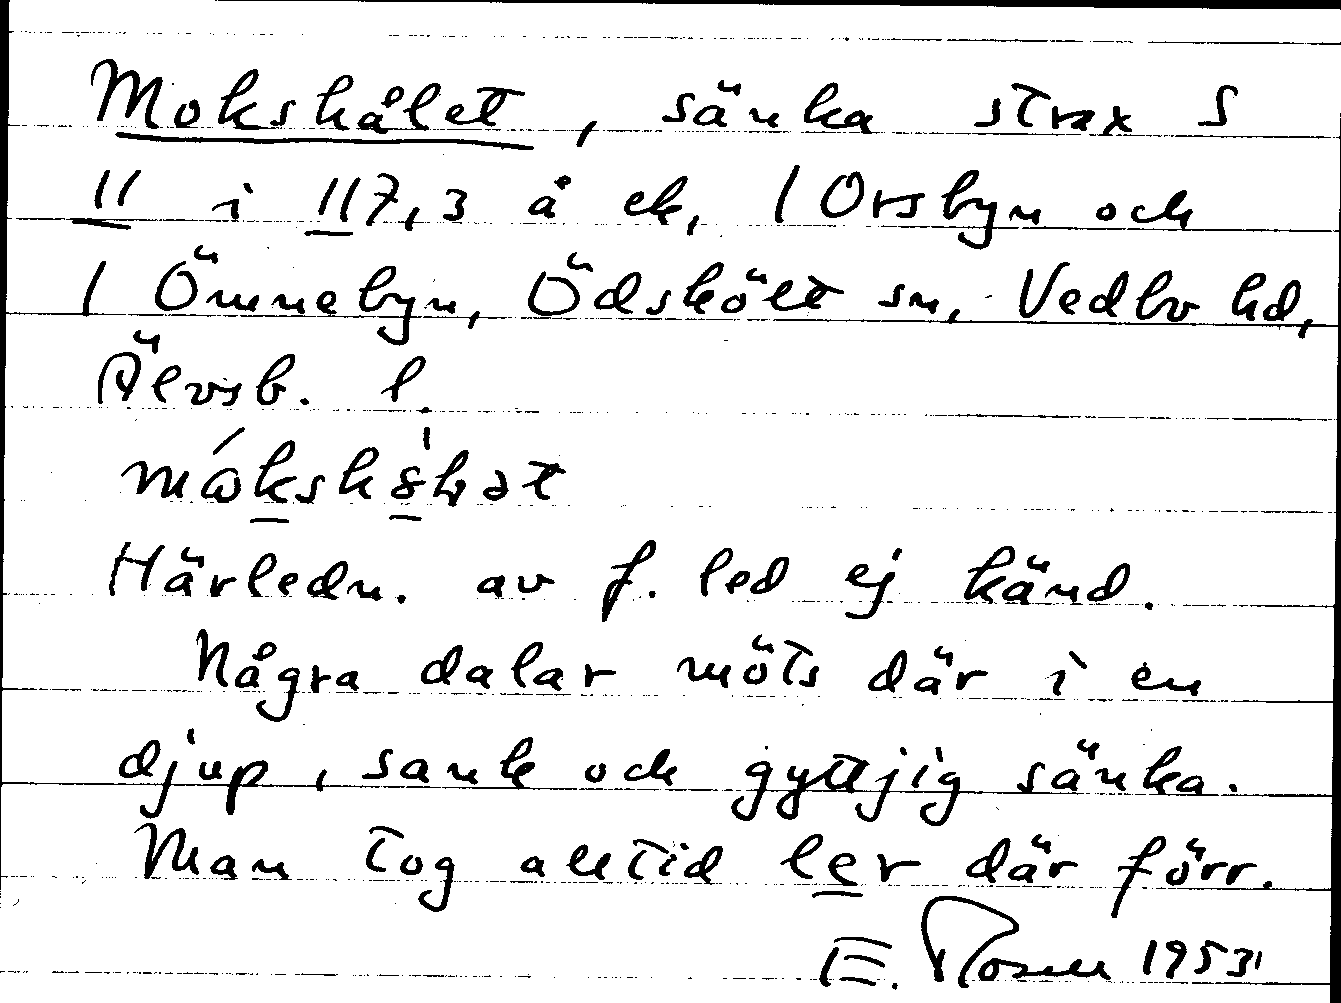 Mokshålet, sänka strax S
11 i 117,3 å ek, 1 Orsbyn och
1 Ömmebyn, Ödskölt sn, Vedbo hd,
Älvsb. l.
Härledn. av f. led ej känd.
Några dalar möts där i en
djup, sank och gyttjig sänka.
Man tog alltid ler där förr.
E. Rosell 1953